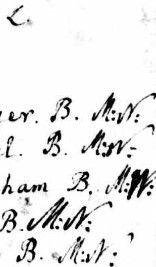 er. B. M:N:
l. B. M:N:
ham B. M:N:
B. M:N:
B. M:N: